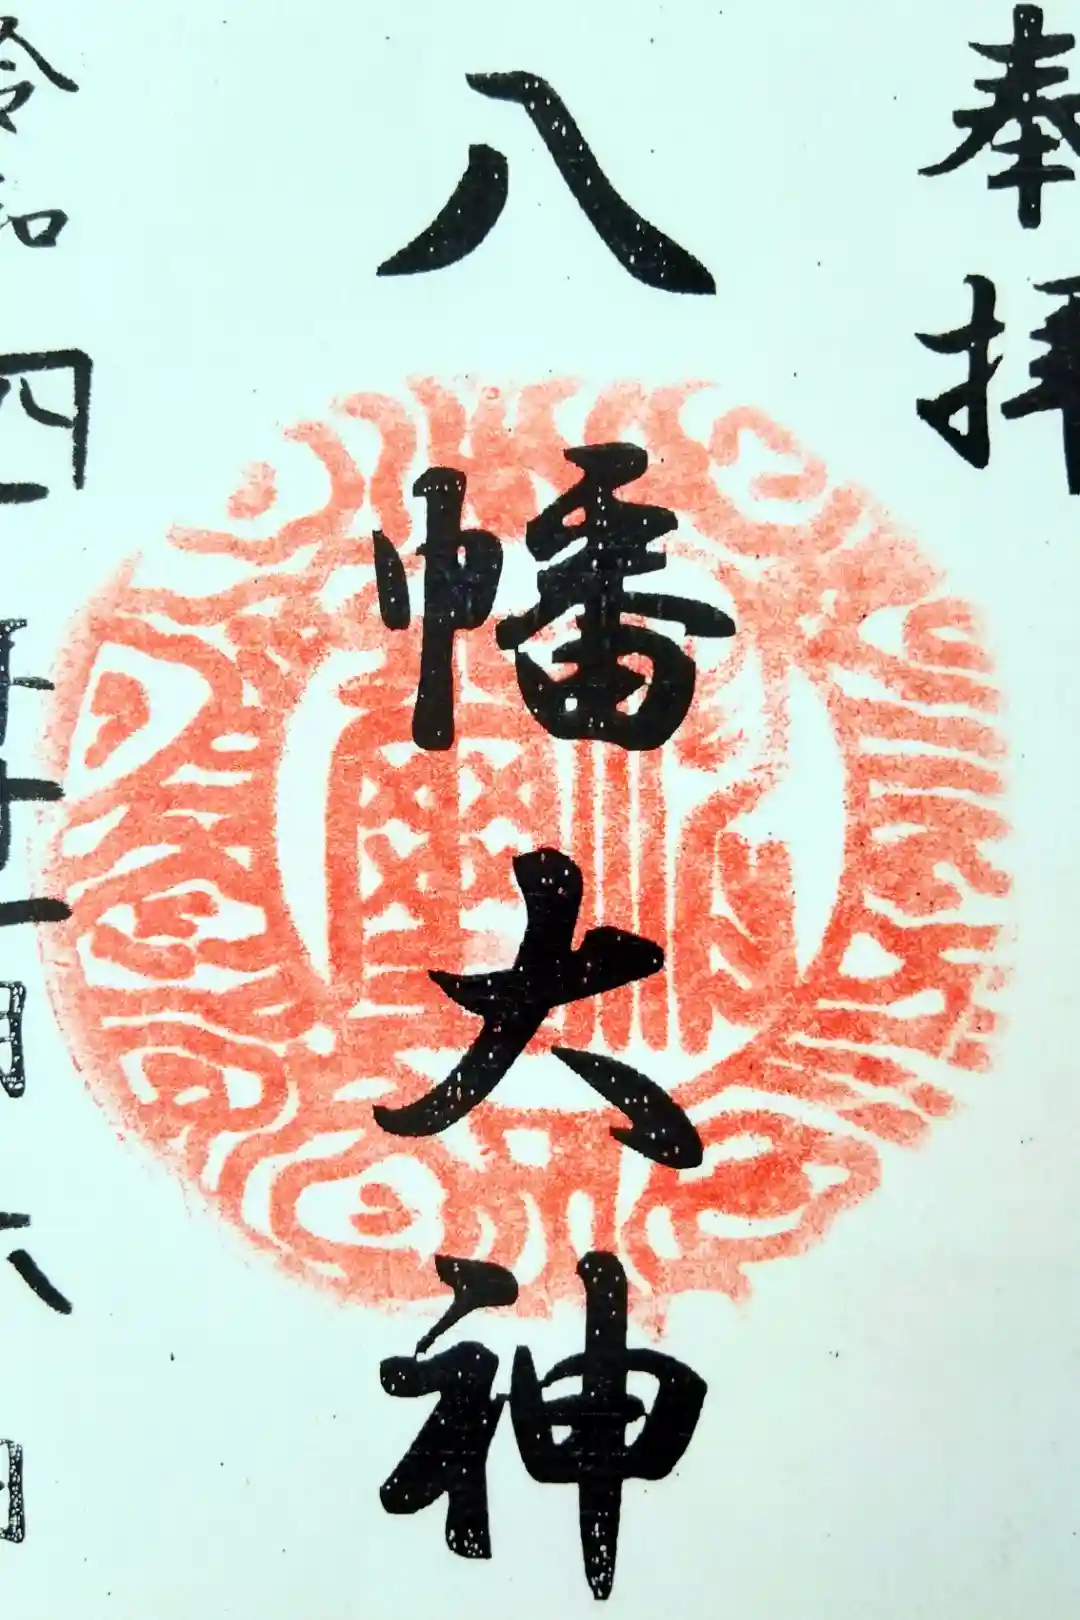 奉拝
八幡大神
令和四年十一月六日